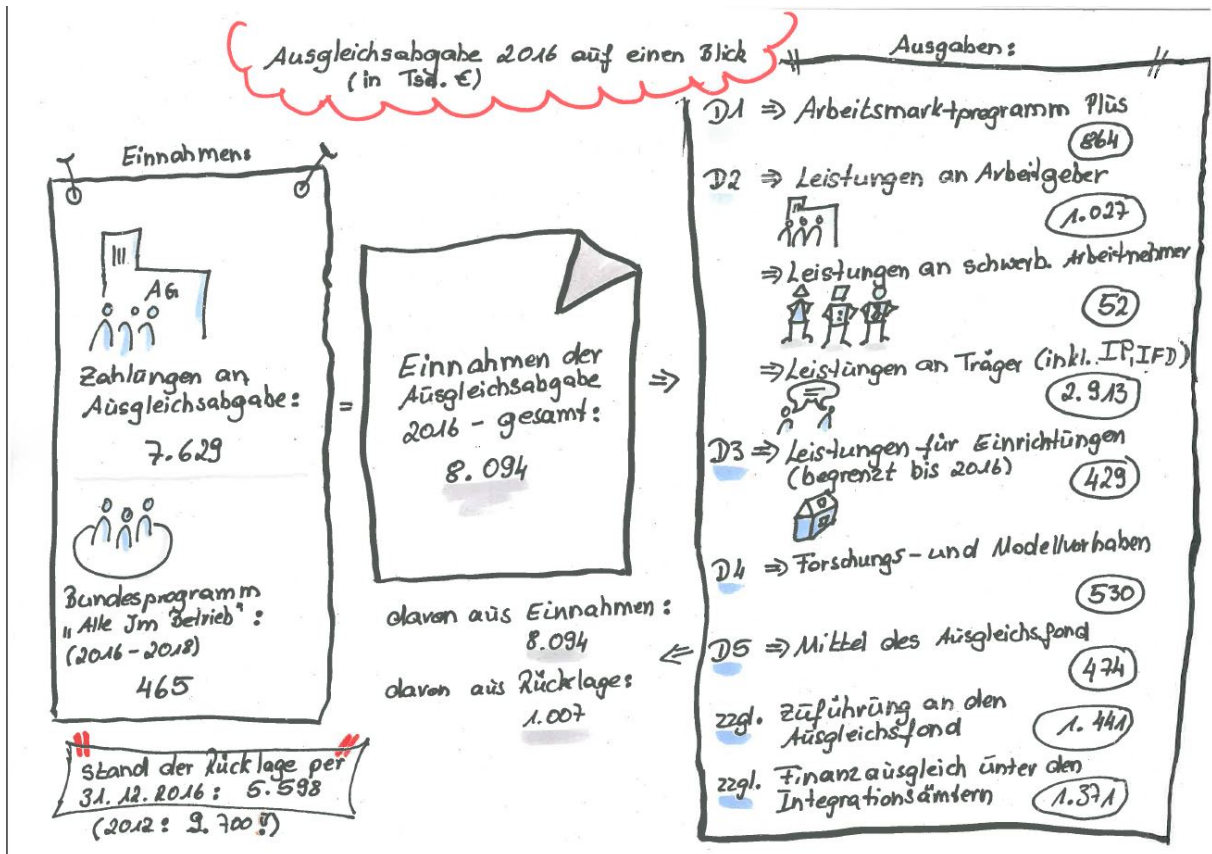 Ausgleichsabgabe 2016 auf einen Blick
(in Tsd. €)
Einnahmen:
AG
Zahlungen an
Ausgleichsabgabe:
7.629
Bundesprogramm
"Alle Im Betrieb":
(2016-2018)
465
Stand der Rücklage per
31.12.2016: 5.598
(2012: 9.700!)
=
Einnahmen der
Ausgleichsabgabe
2016 - gesamt:
8.094
davon aus Einnahmen:
8.094
davon aus Rücklage:
1.007
⇒
⇐
Ausgaben:
D1 ⇒ Arbeitsmarktprogramm Plus
864
D2 ⇒ Leistungen an Arbeitgeber
1.027
⇒ Leistungen an schwerb. Arbeitnehmer
52
⇒ Leistungen an Träger (inkl. IP, IFD)
2.913
D3 ⇒ Leistungen für Einrichtungen
(begrenzt bis 2016)
429
D4 ⇒ Forschungs- und Modellvorhaben
530
D5 ⇒ Mittel des Ausgleichsfond
474
zzgl. Zuführung an den
Ausgleichsfond
1.441
zzgl. Finanzausgleich unter den
Integrationsämtern
1.371